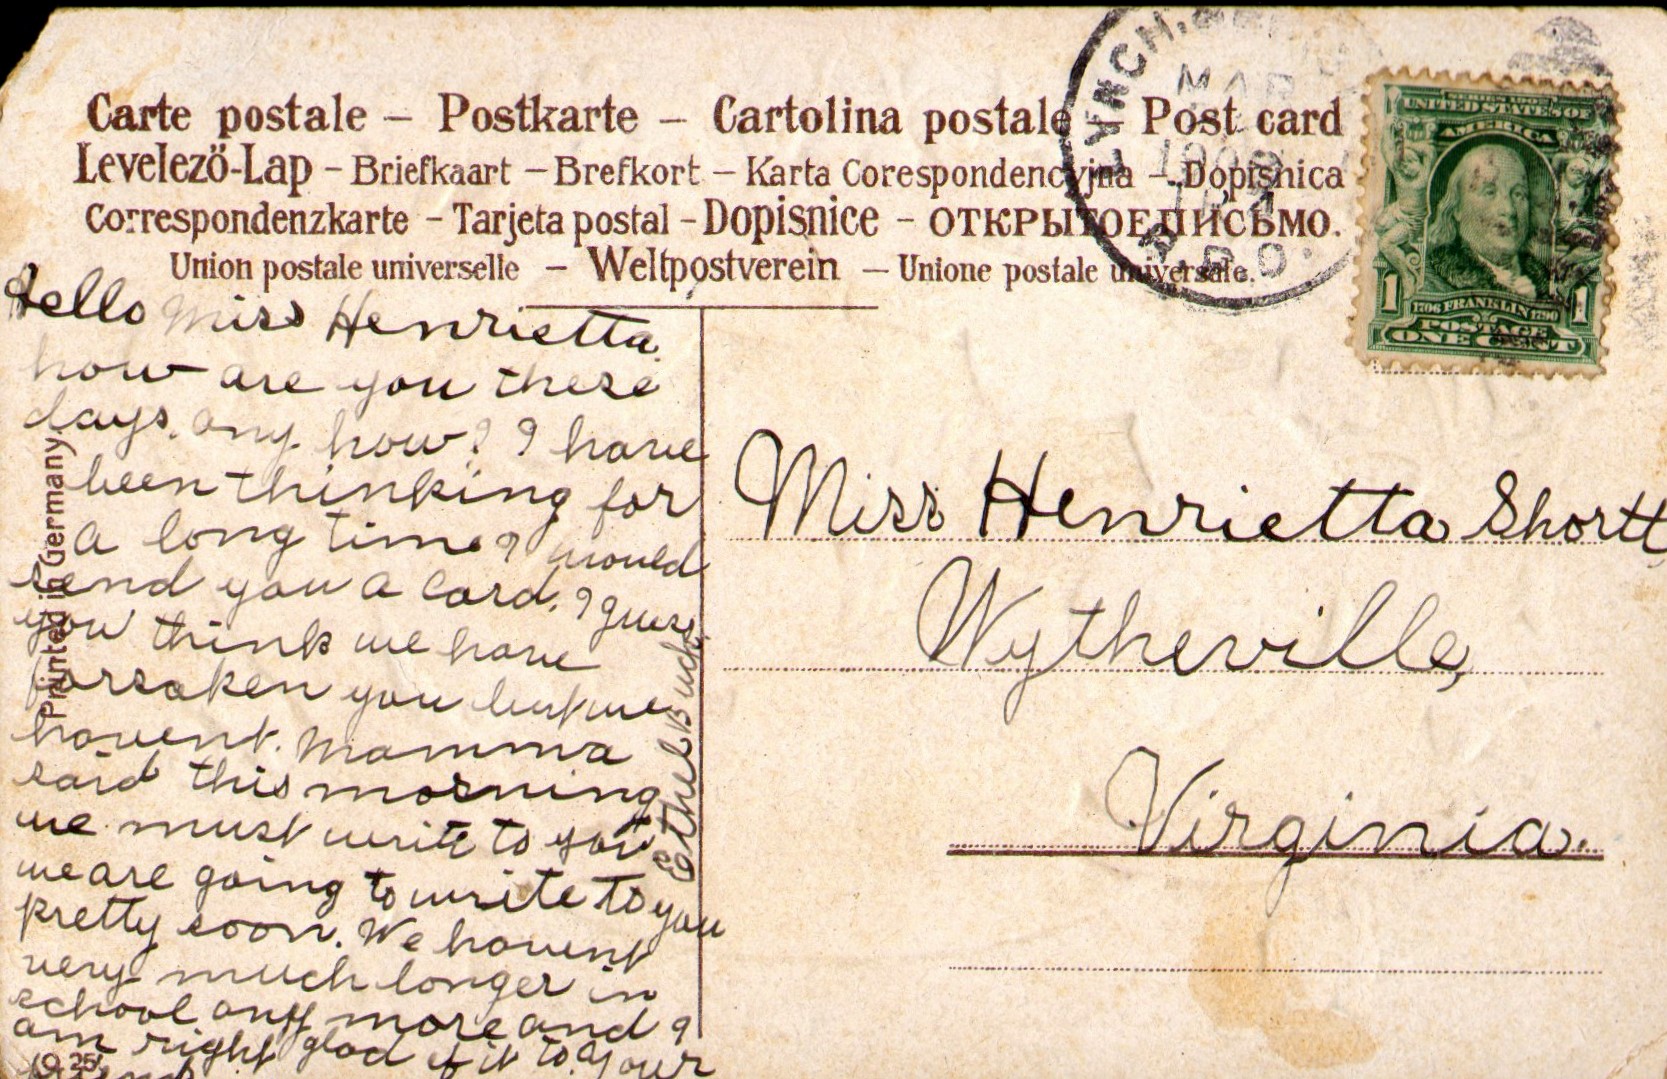 Carte postale – Postkarte – Cartolina postale – Post card
Levelező-Lap – Briefkaart – Brefkort – Karta Corespondencyjna – Dopisnica
Correspondenzkarte – Tarjeta postal – Dopisnice – ОТКРЫТОЕ ПИСЬМО.
Union postale universelle – Weltpostverein – Unione postale universale.
LYNCH.
MAR
R.P.O.
UNITED STATES OF
AMERICA
1 1706 FRANKLIN 1790 1
POSTAGE
ONE CENT
Hello Miss Henrietta
how are you these
days. any how? I have
been thinking for
a long time I would
send you a Card. I guess
you think we have
forsaken you but we
havent. Mamma
said this morning
we must write to you
we are going to write to you
pretty soon. We havent
very much longer in
school any more and I
am right glad of it to. Your
friend
Ethel Buck
Printed in Germany.
Miss Henrietta Shortt
Wytheville,
Virginia.